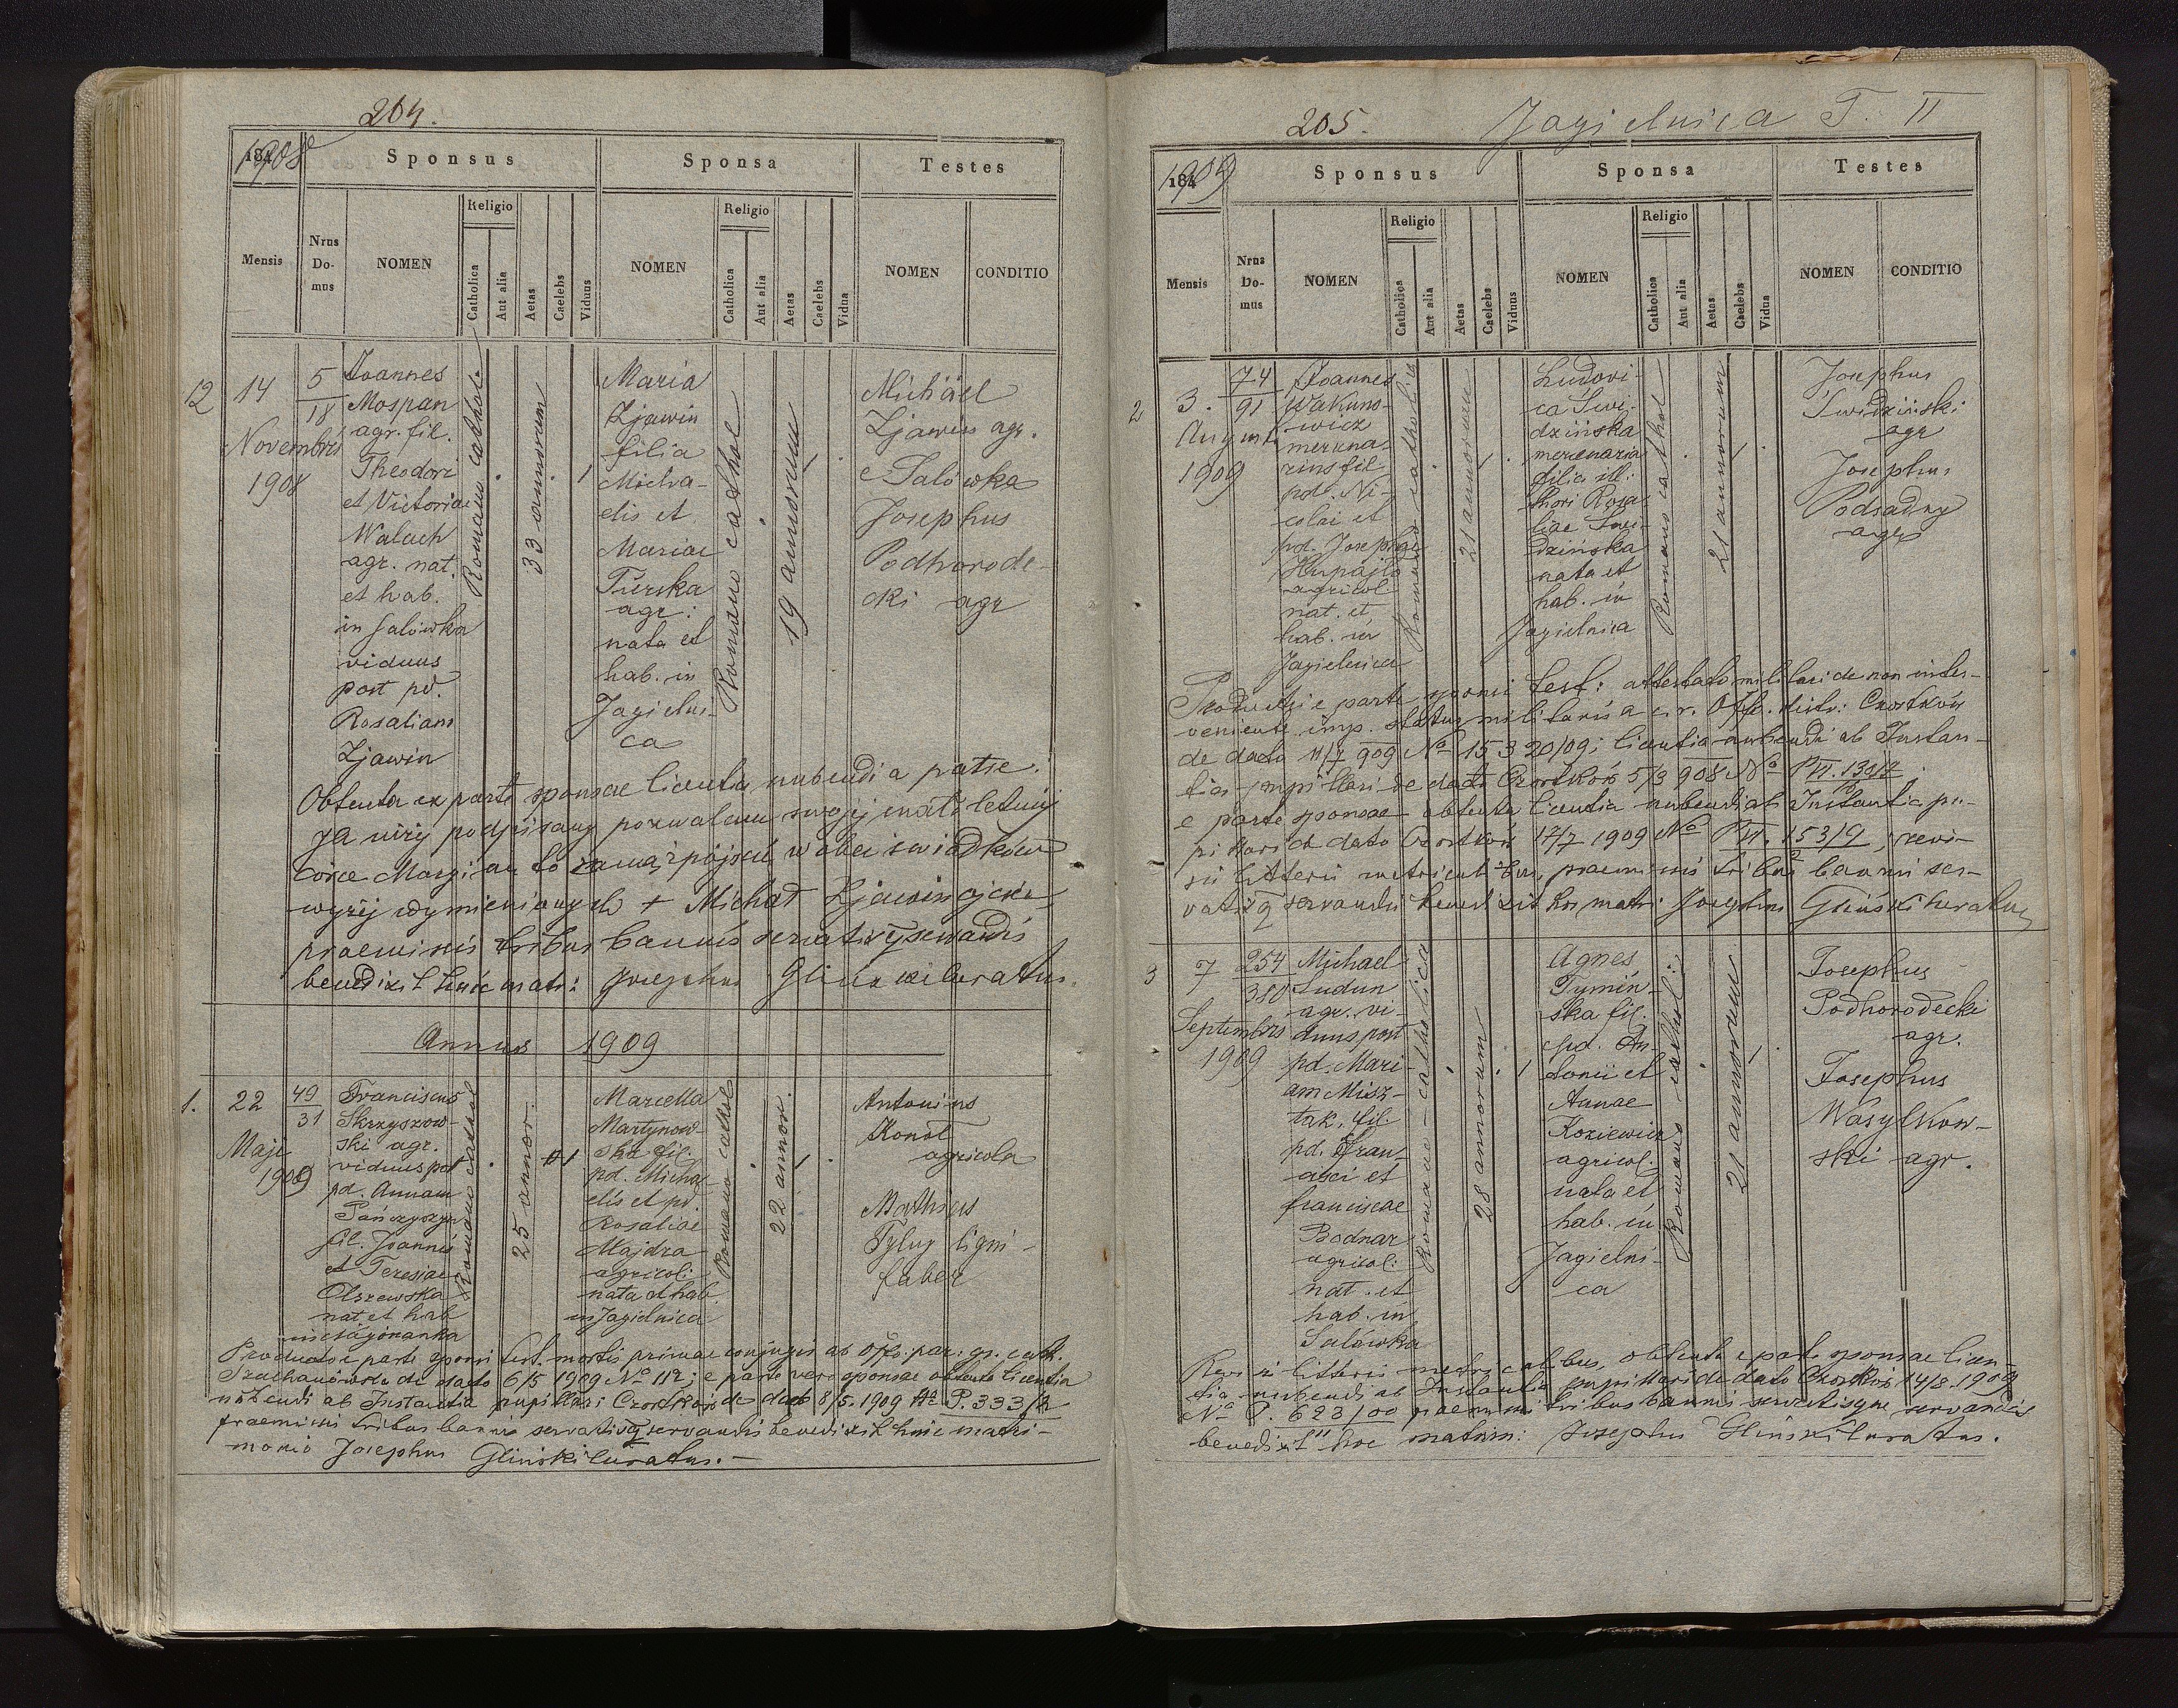 204.
1908
Sponsus
Sponsa
Testes
Mensis
Nrus Do-mus
NOMEN
Religio
Catholica
Aut alia
Aetas
Caelebs
Viduus
NOMEN
Religio
Catholica
Aut alia
Aetas
Caelebs
Vidua
NOMEN
CONDITIO
12
14
Novembris
1908
5
18
Joannes
Mospan
agr. fil.
Theodori
et Victoriae
Waluch
agr. nat.
et hab.
in Salówka
viduus
post pd.
Rosaliam
Zjawin
Romano cathol.
33 annorum
1
Maria
Zjawin
filia
Micha-
elis et
Mariae
Turska
agr:
nata et
hab. in
Jagielni-
ca
Romano cathol
19 annorum
1
Michäel
Zjawin agr.
e Salówka
Josephus
Podhorode-
cki agr
Obtenta ex parte sponsae licentia nubendi a patre:
Ja niżej podpisany pozwalam swojej małoletniej
córce Maryi na to zamążpójście wobec świadków
wyżej wymienionych + Michał Zjawin ojciec
praemissis tribus bannis servatisq servandis
benedixit huic matr: Josephus Glinski Curatus.
Annus 1909
1.
22
Maji
1909
49
31
Franciscus
Skrzyszow-
ski agr.
viduus pt
pd. Annam
Pańczyszyn
fil. Joannis
et Teresiae
Olszewska
nat et hab
Romano cathol
25 annor.
1
Marcella
Martynow-
ska fil.
pd. Micha-
elis et pd.
Rosaliae
Majdra
agricol:
nata et hab.
in Jagielnica
Romano cathol
22 annor.
1
Antonius
Konot
agricola
Mathias
Tylny ligni-
faber
Producto e parte sponsi test. mortis primae conjugis ab Offo: par: gr. cath.
de dato 6/5 1909 No 112; e parte vero sponsae obtenta licentia
nubendi ab Instantia pupillari Czortków de dato 8/5. 1909 No P. 333/2
praemissis tribus bannis servatisq servandis benedixit huic matri-
monio Josephus Gliński Curatus.-
205.
Jagielnica T. II
1909
Sponsus
Sponsa
Testes
Mensis
Nrus Do-mus
NOMEN
Religio
Catholica
Aut alia
Aetas
Caelebs
Viduus
NOMEN
Religio
Catholica
Aut alia
Aetas
Caelebs
Vidua
NOMEN
CONDITIO
2
3.
Augusti
1909
74
91
Joannes
Wakuno-
wicz
mercena-
rius fil
pd. Ni-
colai et
pd. Josephae
Hupajło
agricol
nat. et
hab. in
Jagielnica
Romano catholica
21 annorum
1
Ludovi-
ca Swi-
dzińska
mercenaria
filia ill:
thori Rosa-
liae Swi-
dzińska
nata et
hab. in
Jagielnica
Romano cathol
21 annorum
1
Josephus
Swidziński
agr
Josephus
Podsadny
agr
Producto e parte sponsi test: attestato militari de non inter-
veniente imp. status militaris a c. r. Offo. distr: Czortków
de dato 11/7 909 No 15320/09; licentia nubendi ab Instan-
tia pupillari de dato Czortków 5/3 908 No P VI. 139/7
e parte sponsae obtenta licentia nubendi ab Instantia pu-
pillari de dato Czortków 17/7 1909 No P VI. 153/9, revi-
sis litteris metricalibus, praemissis tribus bannis ser-
vatisq servandis benedixit hoc matr: Josephus Gliński Curatus
3
7
Septembris
1909
254
380
Michael
Ludun
agr. vi-
duus post
pd. Mari-
am Misz-
tak, fil.
pd. Fran-
cisci et
Franciscae
Bodnar
agricol:
nat. et
hab. in
Salówka
Romane-catholica
28 annorum
1
Agnes
Tymin-
ska fil.
pd. An-
tonii et
Annae
Koziewicz
agricol:
nata et
hab. in
Jagielni-
ca
Romano cathol:
21 annorum
1
Josephus
Podhorodecki
agr.
Josephus
Wasylkow-
ski agr.
Revisis litteris metricalibus, obtenta e parte sponsae licen-
tia nubendi ab Instantia pupillari de dato Czortków 14/8. 1909
No P. 623/00 praemissis tribus bannis servatisque servandis
benedixit hoc matrim: Josephus Gliński Curatus.